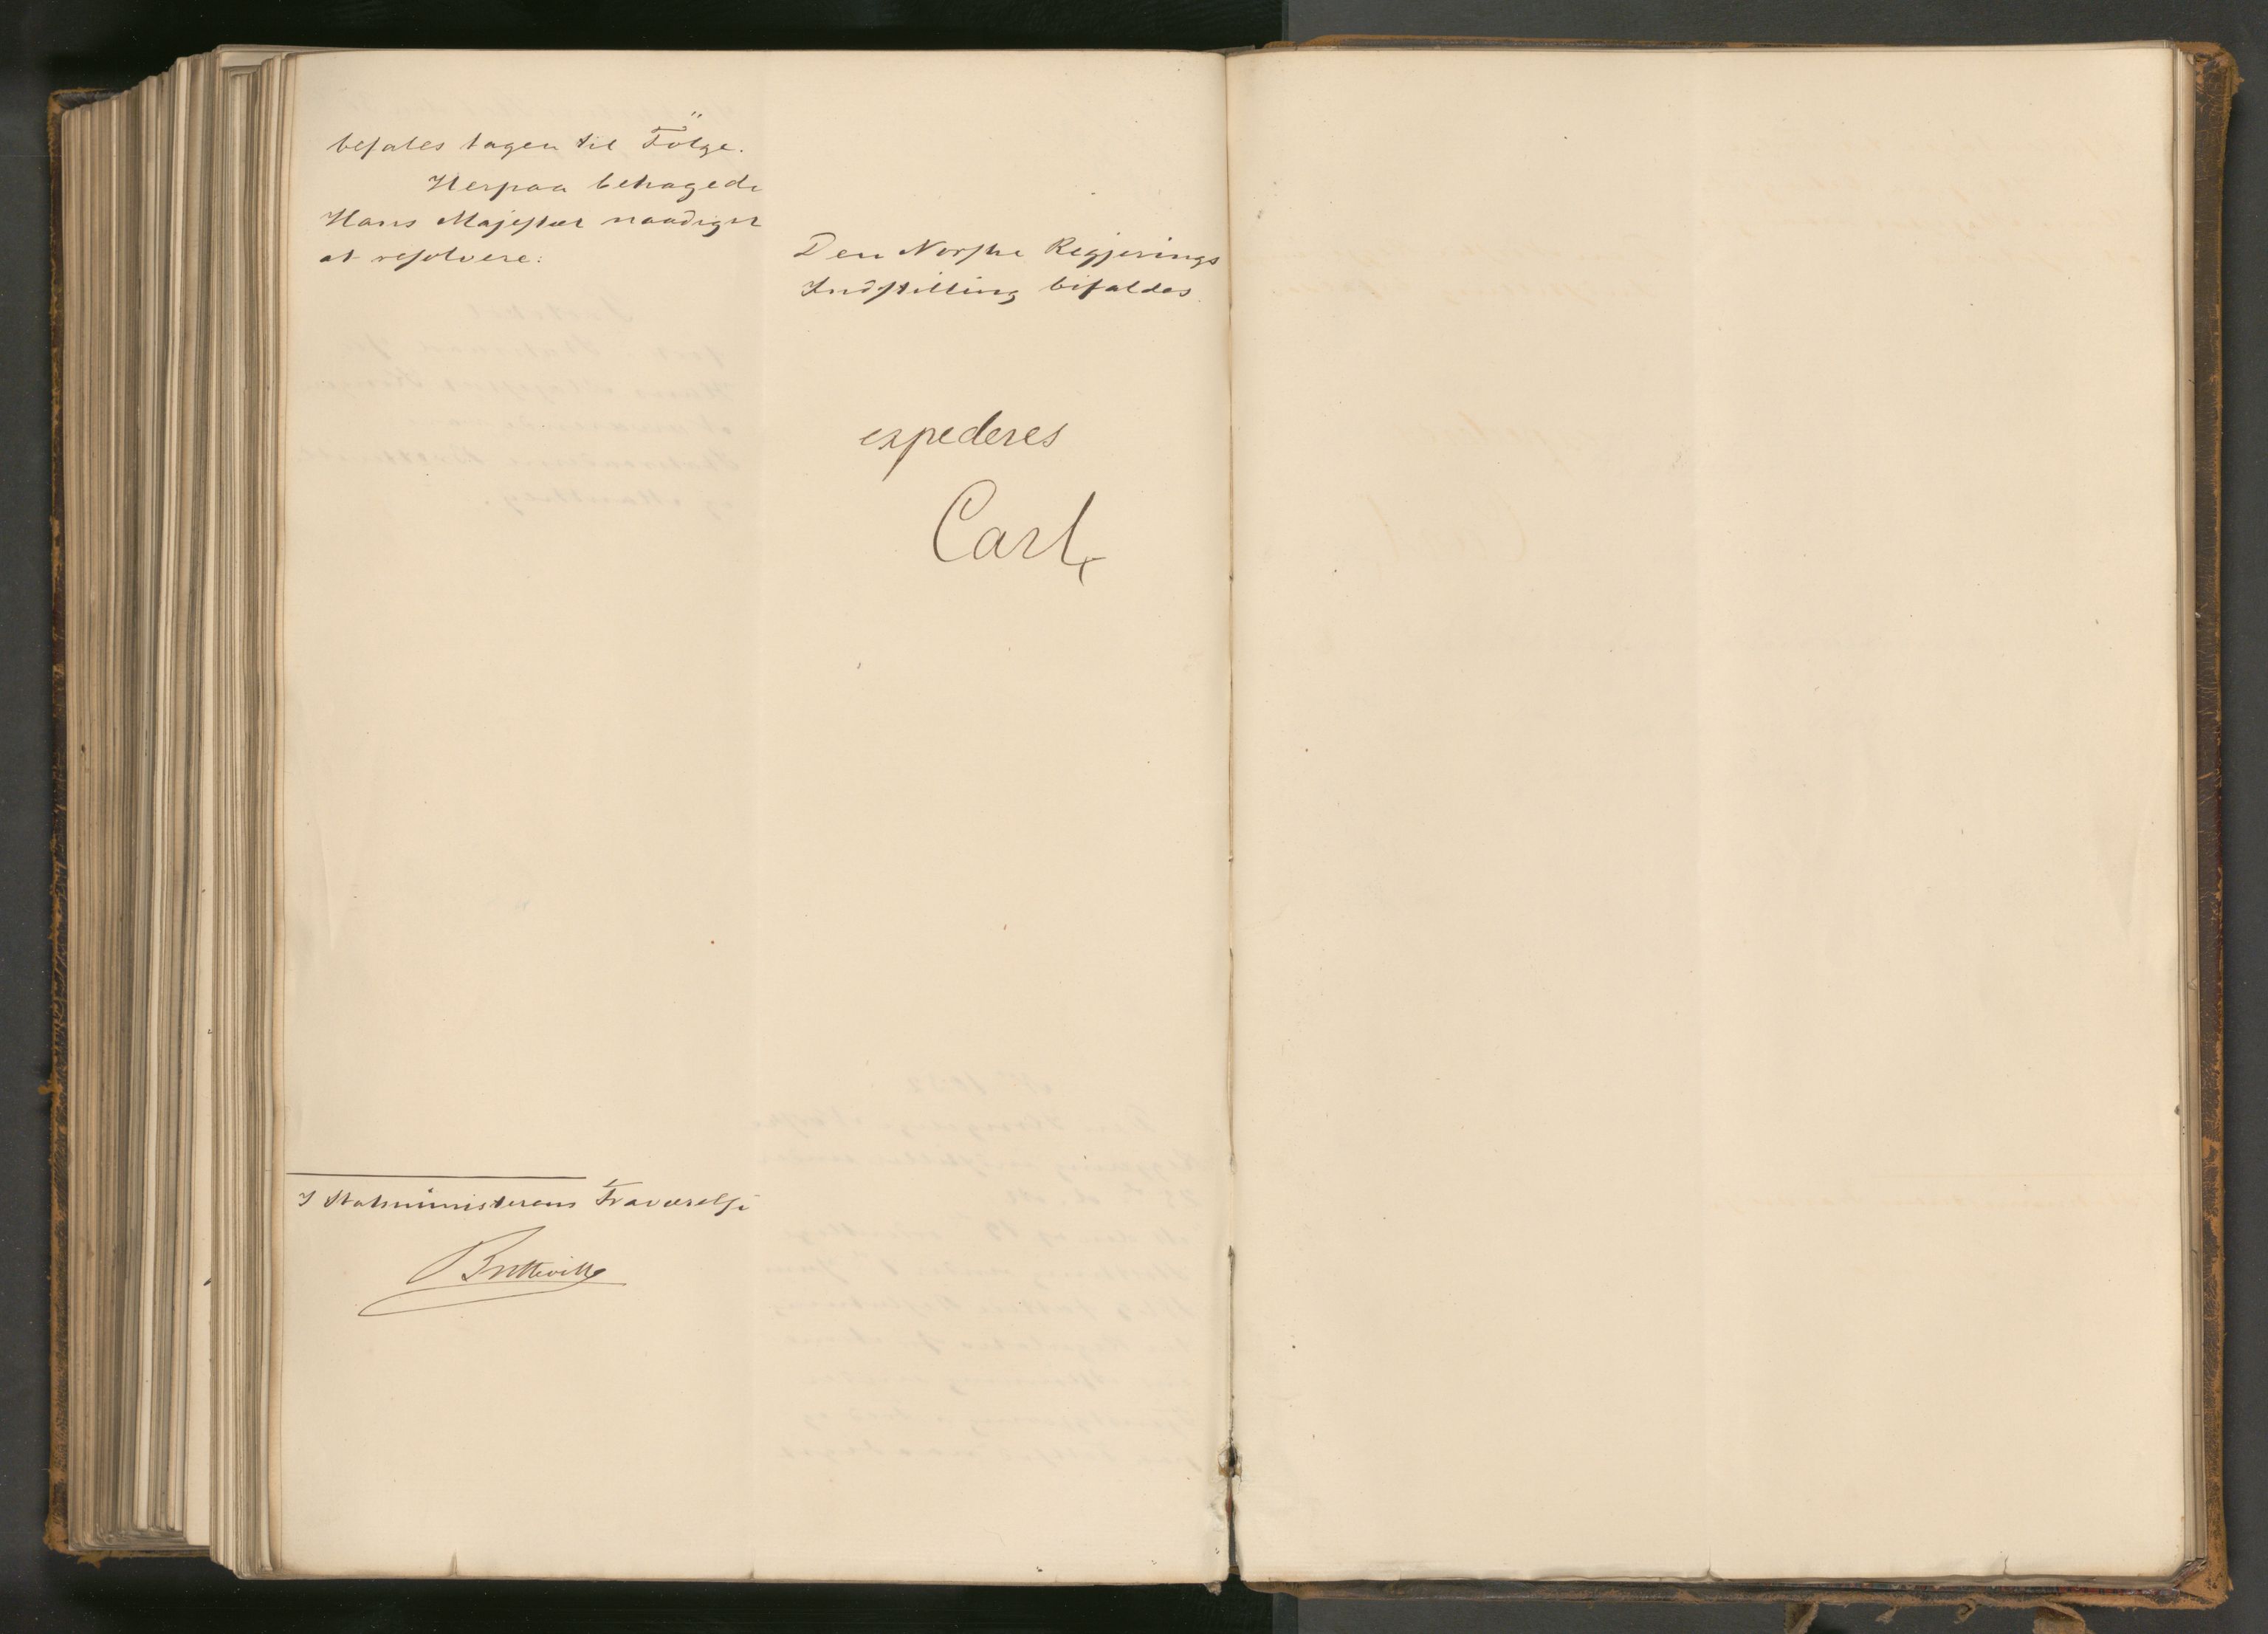 befales tagen til Følge.
Herpaa behagede
Hans Majestæt naadigst
at resolvere:
Den Norske Regjerings
Indstilling bifaldes.
expederes
Carl
I Statsministerens Fraværelse
Bretteville